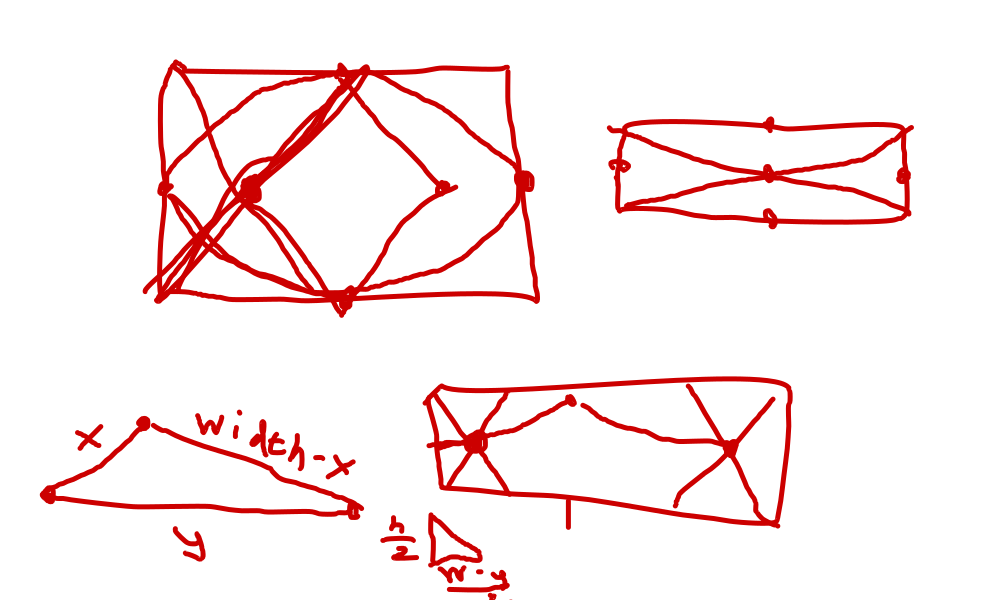 x
width-x
y
h
2
w-y